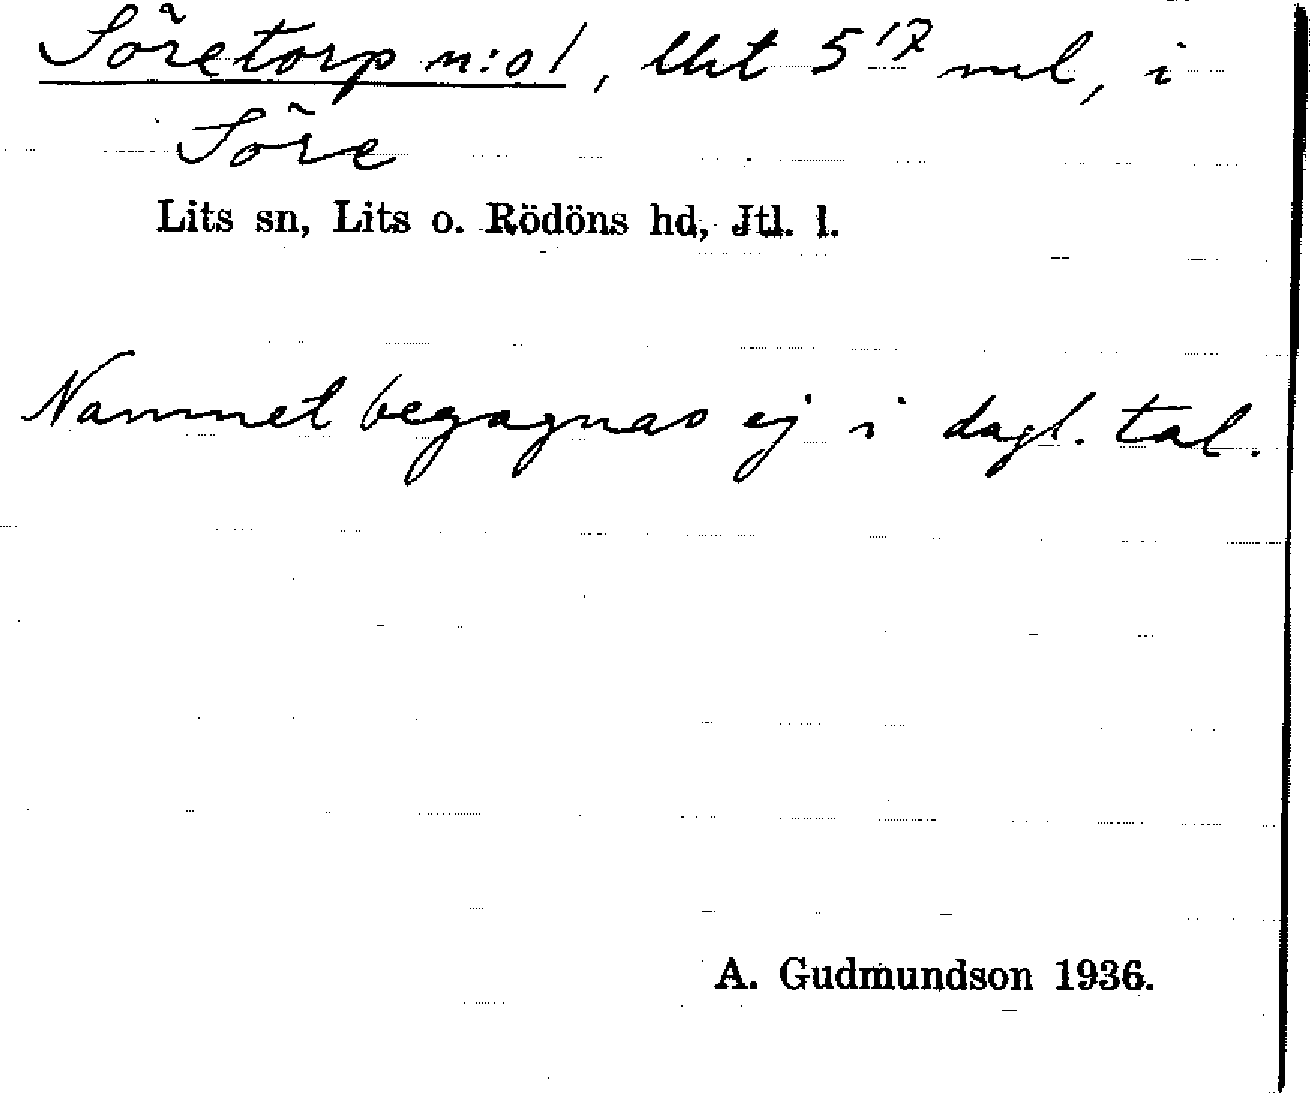 Söretorp n:o 1, lht 5 17 ml, i
Söre
Lits sn, Lits o. Rödöns hd, Jtl. l.
Namnet begagnas ej i dagl. tal.
A. Gudmundson 1936.